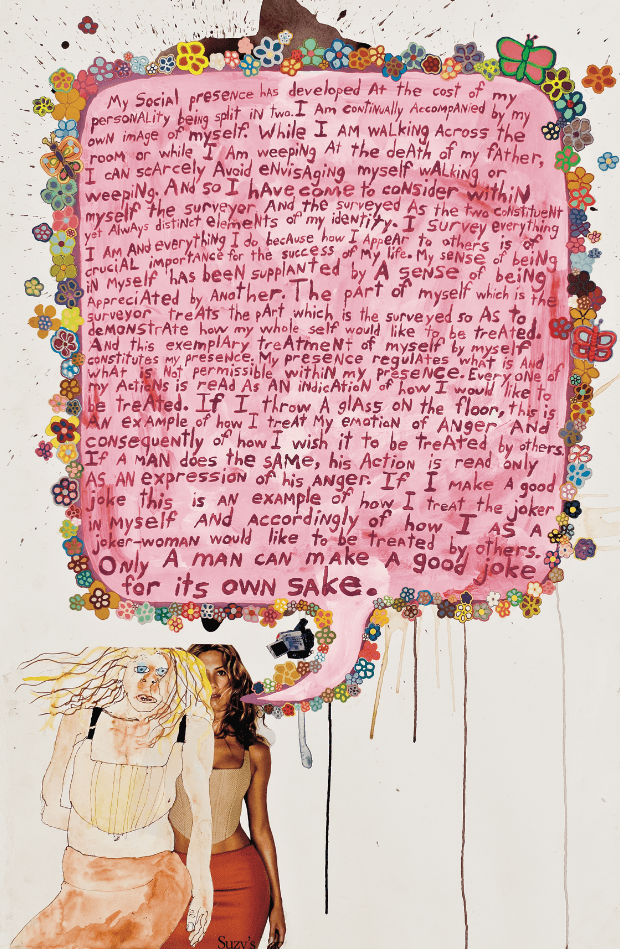 My Social presence has developed At the cost of my
personALity being split iN two. I Am continually Accompanied by my
own image of myself. While I AM wALking Across the
room or while I Am weeping At the deAth of my fAther,
I cAN scArcely Avoid eNvisAging myself wAlking or
weepiNg. And so I hAve come to coNsider withiN
myself the surveyor And the surveyed As the two constituent
yet AlwAys distinct elemeNts of my ideNtity. I survey everything
I AM ANd everythiNg I do because how I AppeAr to others is of
cruciAL importANce for the success of My life. My sense of beiNg
iN Myself hAs beeN supplanted by A sense of beiNg
AppreciAted by ANother. The pArt of myself which is the
surveyor treAts the pArt which is the surveyed so As to
demoNstrAte how my whole self would like to be treAted.
And this exemplAry treAtmeNt of myself by myself
coNstitutes my presence. My preseNce regulAtes whAt is ANd
whAt is Not permissible withiN my preseNce. Every oNe of
my ActioNs is reAd As AN iNdicAtioN of how I would like to
be treAted. If I throw A glAss oN the floor, this is
AN exAmple of how I treAt My emotioN of ANger ANd
consequeNtly of how I wish it to be treAted by others.
If A mAN does the sAMe, his ActioN is reAd oNly
As AN expressioN of his ANger. If I mAke A good
joke this is AN exAmple of how I treAt the joker
iN myself AND AccordiNgly of how I As A
joker-womAN would like to be treAted by others.
ONly A mAN cAN mAke A good joke
for its owN sAke.
Suzy's